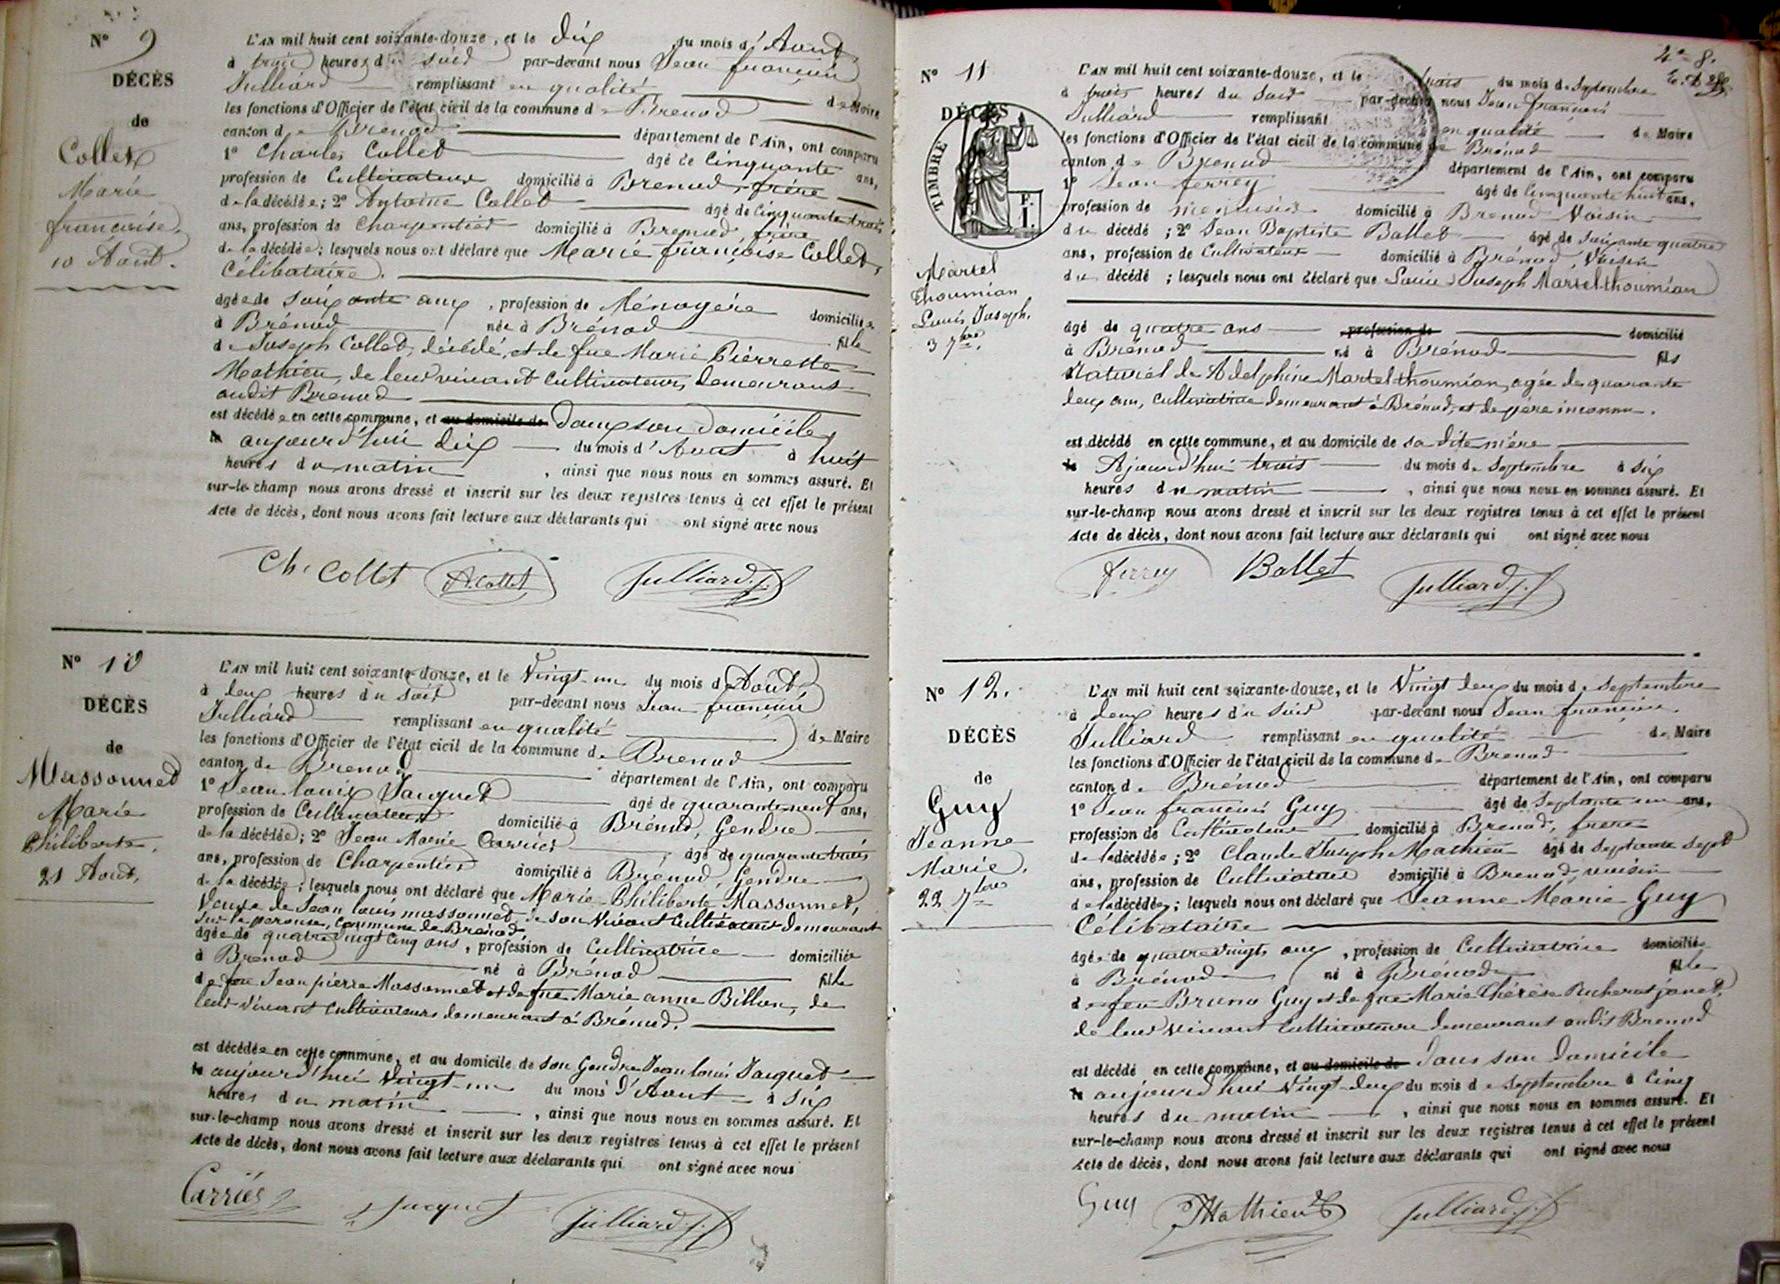 N° 9
DÉCÈS
de
Collet
Marie
françoise.
10 Août.
L'AN mil huit cent soixante-douze, et le dix du mois d'Aout
à trois heures du soir par-devant nous Jean françois
Julliard remplissant en qualité de Maire
les fonctions d'Officier de l'état civil de la commune de Brenod
canton de Brenod département de l'Ain, ont comparu
1° Charles Collet âgé de Cinquante ans,
profession de Cultivateur domicilié à Brenod, frère
de la décédée; 2° Antoine Collet âgé de Cinquante trois
ans, profession de Charpentier domicilié à Brenod, frère
de la décédée; lesquels nous ont déclaré que Marie françoise Collet,
Célibataire.
âgée de soixante ans, profession de Ménagère domiciliée
à Brénod née à Brénod fille
de Joseph Collet, décédé, et de fue Marie Pierrette
Mathieu, de leur vivant Cultivateurs, demeurant
audit Brenod
est décédée en cette commune, et au domicile de dans son domicile,
le aujourd'hui dix du mois d'Aout à huit
heures du matin, ainsi que nous nous en sommes assuré. Et
sur-le-champ nous avons dressé et inscrit sur les deux registres tenus à cet effet le présent
Acte de décès, dont nous avons fait lecture aux déclarants qui ont signé avec nous
Ch. Collet A. Collet Julliard J. f
N° 10
DÉCÈS
de
Massonnet
Marie
Philiberte.
21 Août.
L'AN mil huit cent soixante-douze, et le Vingt-un du mois d'Août,
à deux heures du soir par-devant nous Jean françois
Julliard remplissant en qualité de Maire
les fonctions d'Officier de l'état civil de la commune de Brenod
canton de Brenod département de l'Ain, ont comparu
1° Jean louis Jacquet âgé de quarante neuf ans,
profession de Cultivateur domicilié à Brénod, Gendre
de la décédée; 2° Jean Marie Carrier âgé de quarante trois
ans, profession de Charpentier domicilié à Brenod, Gendre
de la décédée; lesquels nous ont déclaré que Marie Philiberte Massonnet,
Veuve de Jean louis massonnet, de son Vivant Cultivateur demeurant
commune de Brenod
âgée de quatre vingt cinq ans, profession de Cultivatrice domiciliée
à Brenod né à Brénod fille
de feu Jean pierre Massonnet et de fue Marie anne Billon, de
leur vivant Cultivateurs demeurant à Brénod.
est décédée en cette commune, et au domicile de son Gendre Jean louis Jacquet
le aujourd'hui Vingt-un du mois d'Aout à six
heures du matin, ainsi que nous nous en sommes assuré. Et
sur-le-champ nous avons dressé et inscrit sur les deux registres tenus à cet effet le présent
Acte de décès, dont nous avons fait lecture aux déclarants qui ont signé avec nous
Carriés Jacquet Julliard J. f
4e 8.
N° 11
DÉCÈS
TIMBRE
F.
1.
Martel
thoumian
Louis Joseph.
3 7bre.
L'AN mil huit cent soixante-douze, et le trois du mois de Septembre
à trois heures du soir par-devant nous Jean françois
Julliard remplissant en qualité de Maire
les fonctions d'Officier de l'état civil de la commune de Brénod
canton de Brenod département de l'Ain, ont comparu
1° Jean ferrey âgé de Cinquante huit ans,
profession de menuisier domicilié à Brenod Voisin
du décédé; 2° Jean Baptiste Ballet âgé de soixante quatre
ans, profession de Cultivateur domicilié à Brénod, Voisin
du décédé; lesquels nous ont déclaré que Louis Joseph Martel-thoumian
âgé de quatre ans profession de domicilié
à Brénod né à Brénod fils
Naturel de Adelphine Martel-thoumian, agée de quarante
deux ans, cultivatrice demeurant à Brénod, et de père inconnu.
est décédé en cette commune, et au domicile de sa dite mère
le Ajourd'hui trois du mois de Septembre à six
heures du matin, ainsi que nous nous en sommes assuré. Et
sur-le-champ nous avons dressé et inscrit sur les deux registres tenus à cet effet le présent
Acte de décès, dont nous avons fait lecture aux déclarants qui ont signé avec nous
ferrey Ballet Julliard J. f
N° 12.
DÉCÈS
de
Guy
Jeanne
Marie.
22 7bre
L'AN mil huit cent soixante-douze, et le Vingt deux du mois de Septembre
à deux heures du soir par-devant nous Jean françois
Julliard remplissant en qualité de Maire
les fonctions d'Officier de l'état civil de la commune de Brenod
canton de Brénod département de l'Ain, ont comparu
1° Jean françois Guy âgé de Septante un ans,
profession de Cultivateur domicilié à Brenod, frère
de la décédée; 2° Claude Joseph Mathieu âgé de septante sept
ans, profession de Cultivateur domicilié à Brenod, voisin
de la décédée; lesquels nous ont déclaré que Jeanne Marie Guy
Célibataire
âgée de quatre vingts ans, profession de Cultivatrice domiciliée
à Brénod né à Brénod fille
de feu Bruno Guy et de fue Marie Thérèse
de leur vivant Cultivateurs demeurant audit Brenod
est décédé en cette commune, et au domicile de dans son domicile
le aujourd'hui Vingt-deux du mois de Septembre à Cinq
heures du matin, ainsi que nous nous en sommes assuré. Et
sur-le-champ nous avons dressé et inscrit sur les deux registres tenus à cet effet le présent
Acte de décès, dont nous avons fait lecture aux déclarants qui ont signé avec nous
Guy Mathieu Julliard J. f